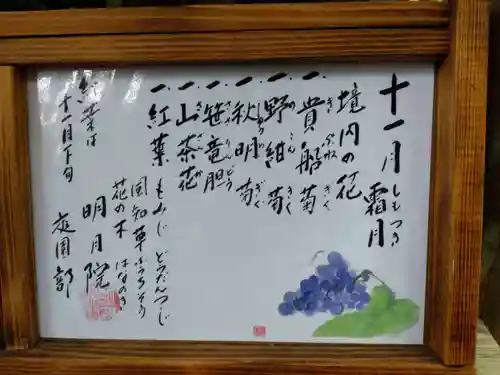 十一月 霜月 しもつき
境内の花
一 貴船菊 きぶねぎく
一 野紺菊 のこんぎく
一 秋明菊 しゅうめいぎく
一 笹竜胆 ささりんどう
一 山茶花 さざんか
一 紅葉 もみじ どうだんつつじ
花の木 はなのき
紅葉は
十一月下旬
明月院
庭園部